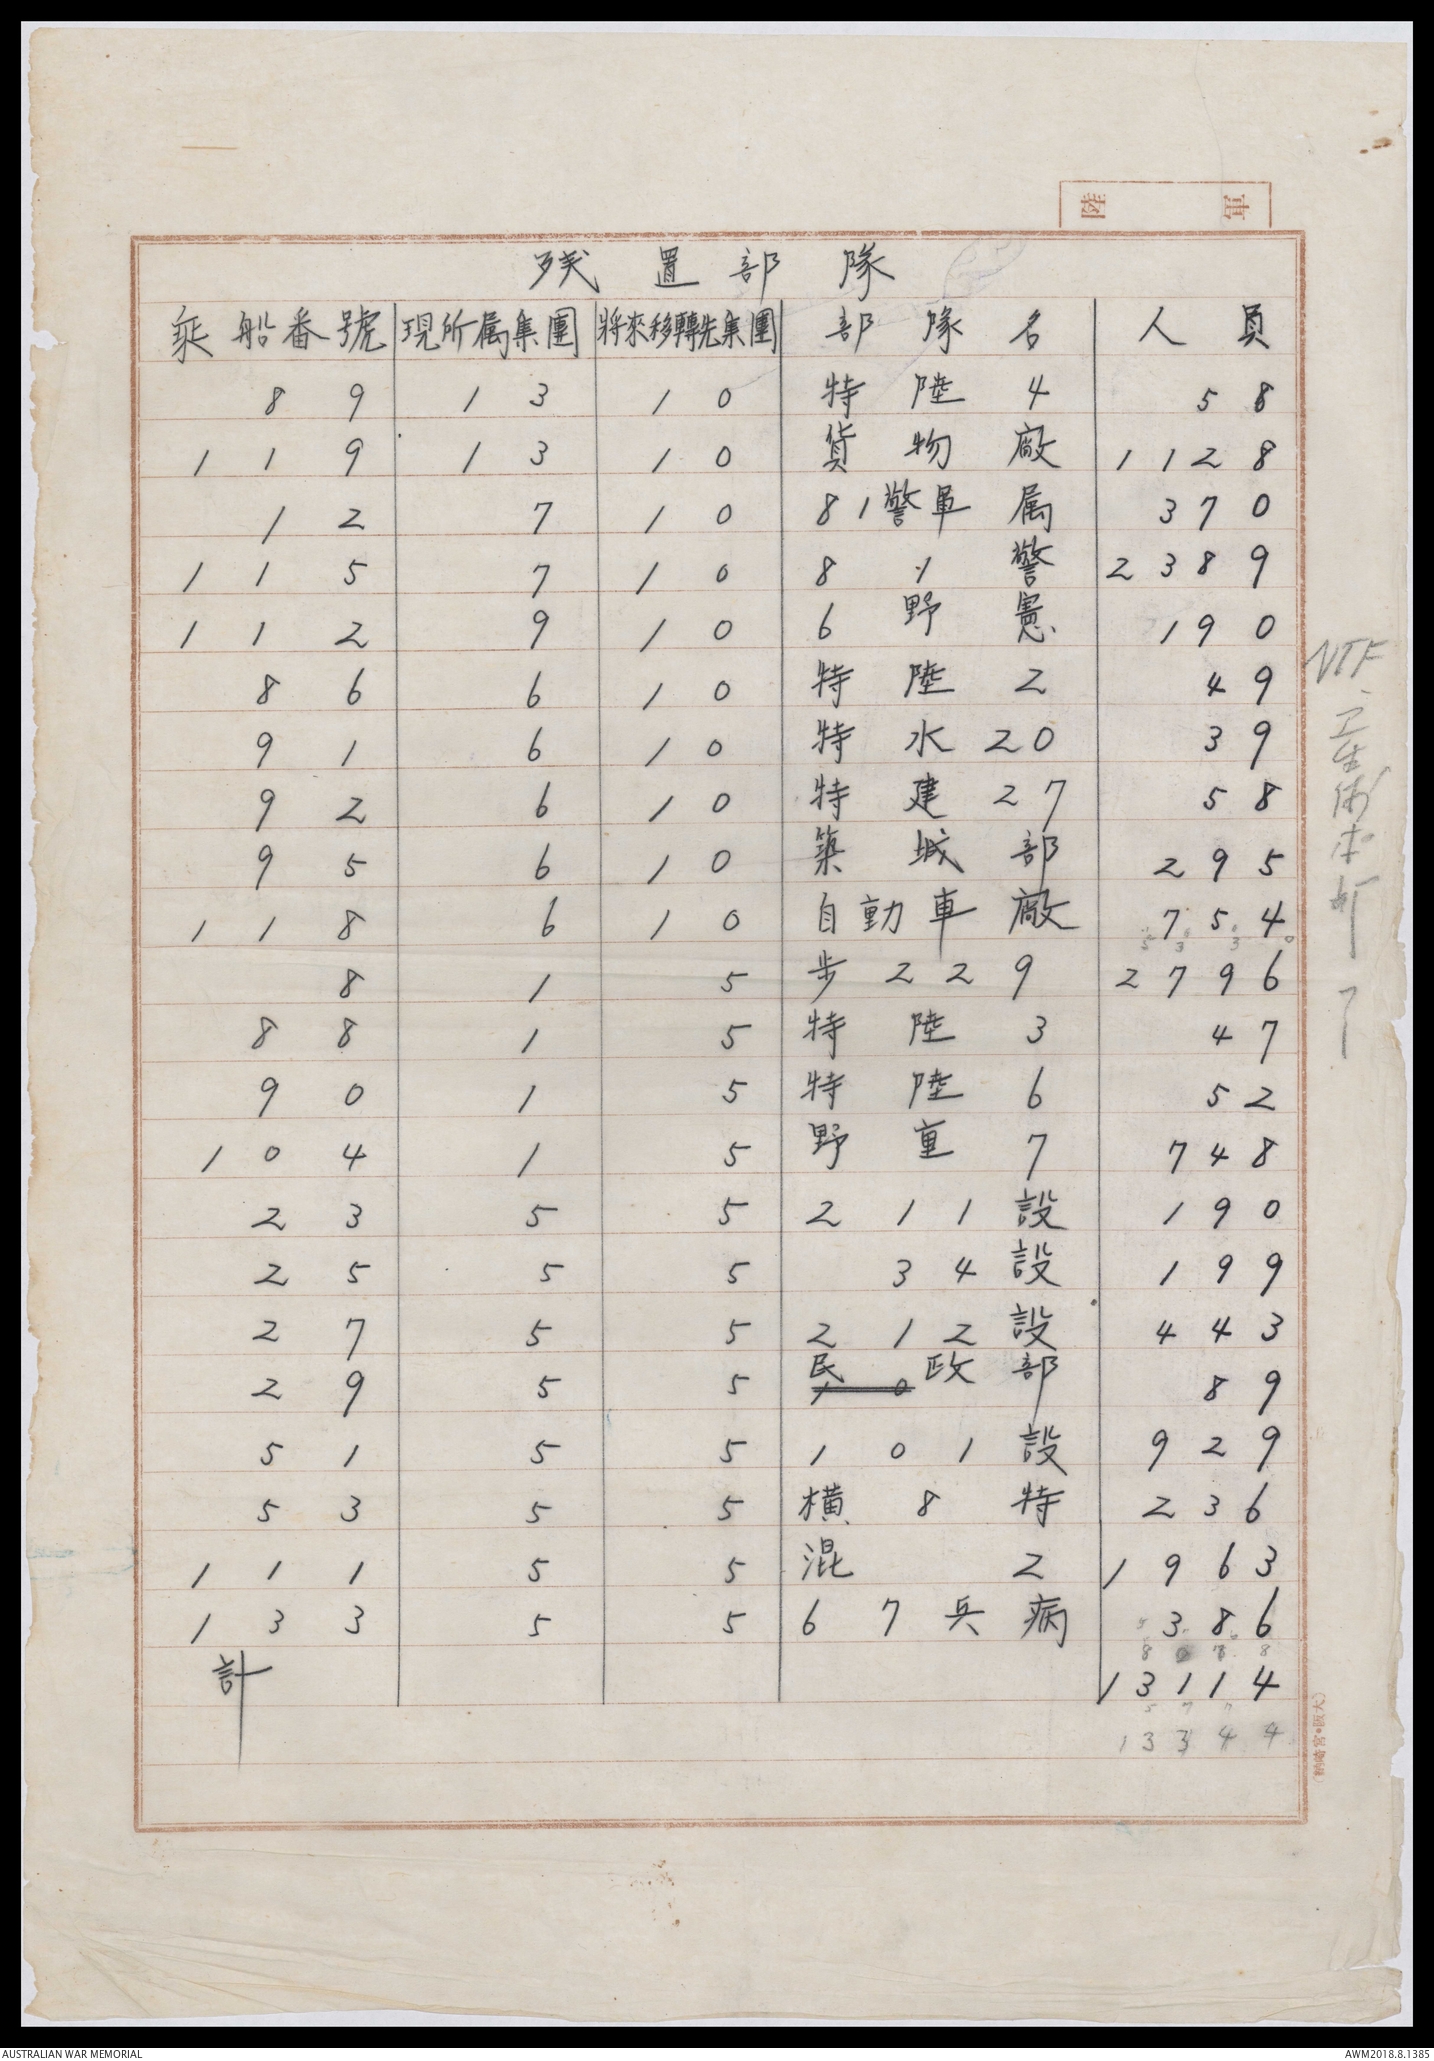 陸 軍
残置部隊
乗船番號 現所属集團 將來移轉先集團 部隊名 人員
89 13 10 特陸4 58
119 13 10 貨物廠 1128
12 7 10 81警軍属 370
115 7 10 81警 2389
112 9 10 6野憲 190
86 6 10 特陸2 49
91 6 10 特水20 39
92 6 10 特建27 58
95 6 10 築城部 295
118 6 10 自動車廠 754
8 1 5 步229 2796
88 1 5 特陸3 47
90 1 5 特陸6 52
104 1 5 野重7 748
23 5 5 211設 190
25 5 5 34設 199
27 5 5 212設 443
29 5 5 民政部 89
51 5 5 101設 929
53 5 5 横8特 236
111 5 5 混2 1963
133 5 5 67兵病 386
計 13114
13344
AUSTRALIAN WAR MEMORIAL
AWM2018.8.1385